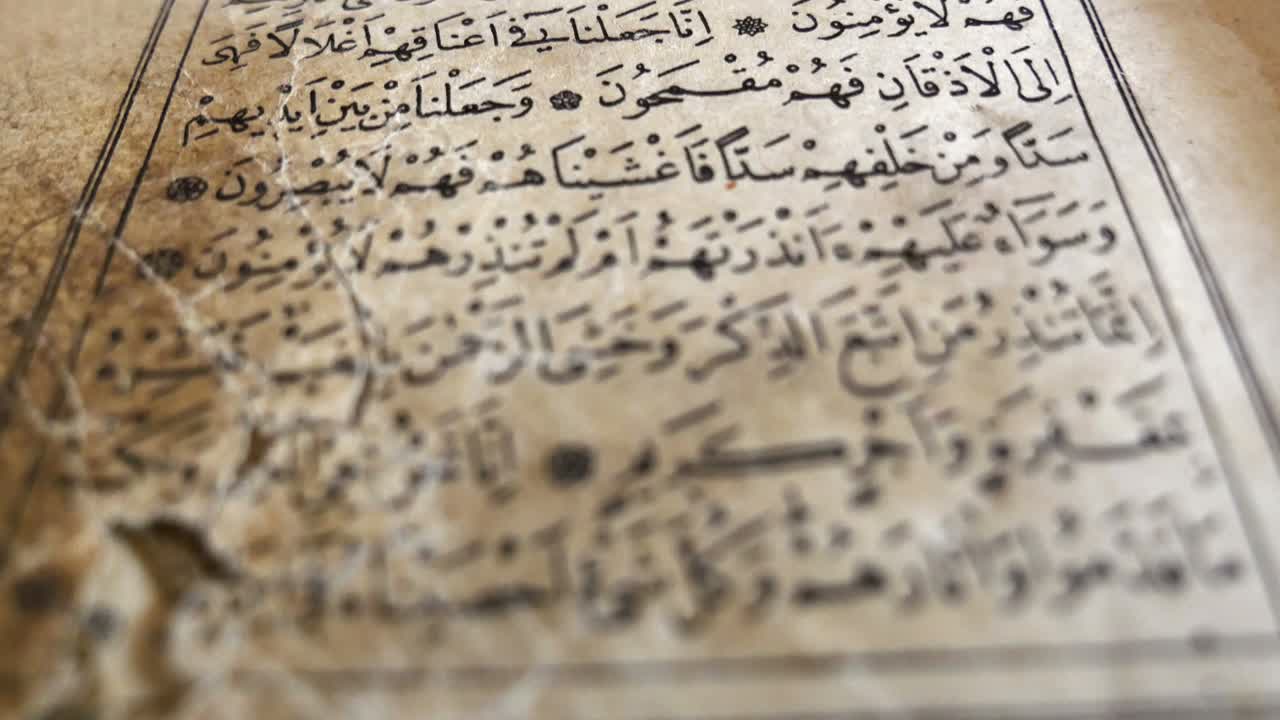 فَهُمْ لَا يُؤْمِنُونَ ۞ اِنَّا جَعَلْنَا فٖٓى اَعْنَاقِهِمْ اَغْلَالًا فَهِىَ
اِلَى الْاَذْقَانِ فَهُمْ مُقْمَحُونَ ۞ وَجَعَلْنَا مِنْ بَيْنِ اَيْدٖيهِمْ
سَدًّا وَمِنْ خَلْفِهِمْ سَدًّا فَاَغْشَيْنَاهُمْ فَهُمْ لَا يُبْصِرُونَ ۞
وَسَوَٓاءٌ عَلَيْهِمْ ءَاَنْذَرْتَهُمْ اَمْ لَمْ تُنْذِرْهُمْ لَا يُؤْمِنُونَ ۞
اِنَّمَا تُنْذِرُ مَنِ اتَّبَعَ الذِّكْرَ وَخَشِىَ الرَّحْمٰنَ بِالْغَيْبِ فَبَشِّرْهُ
بِمَغْفِرَةٍ وَاَجْرٍ كَرٖيمٍ ۞ اِنَّا نَحْنُ
قَدَّمُوا وَاٰثَارَهُمْ وَكُلَّ شَىْءٍ اَحْصَيْنَاهُ